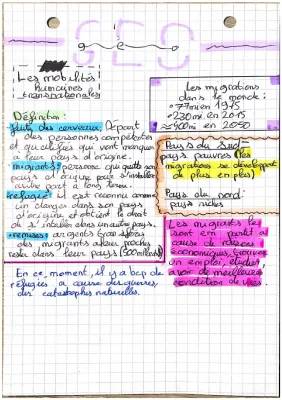 GEO
Les mobilités
humaines
transnationales
Définition:
fuite des cerveaux: Départ
des personnes compétentes
et qualifiées qui vont manquer
à leur pays d'origine.
migrants: personne qui quitte son
pays d'origine pour s'installer
autre part à long terme.
refugié: il est reconnu comme
un danger dans son pays
d'origine et obtient le droit
de s'installer dans un autre pays.
remises: argents transférés
des migrants à leur proches
restés dans leur pays (500 milliards)
En ce moment, il y a bcp de
réfugiés à cause des guerres
des catastrophes naturelles.
Les migrations
dans le monde:
77m en 1975
230mi en 2015
≈400mi en 2050
Pays du Sud=
pays pauvres (les
migrations se développent
de plus en plus)
Pays du nord:
pays riches
Les migrants
sont parti à
cause de raisons
économiques, trouver
un emploi, étudier,
avoir de meilleures
condition de vies.